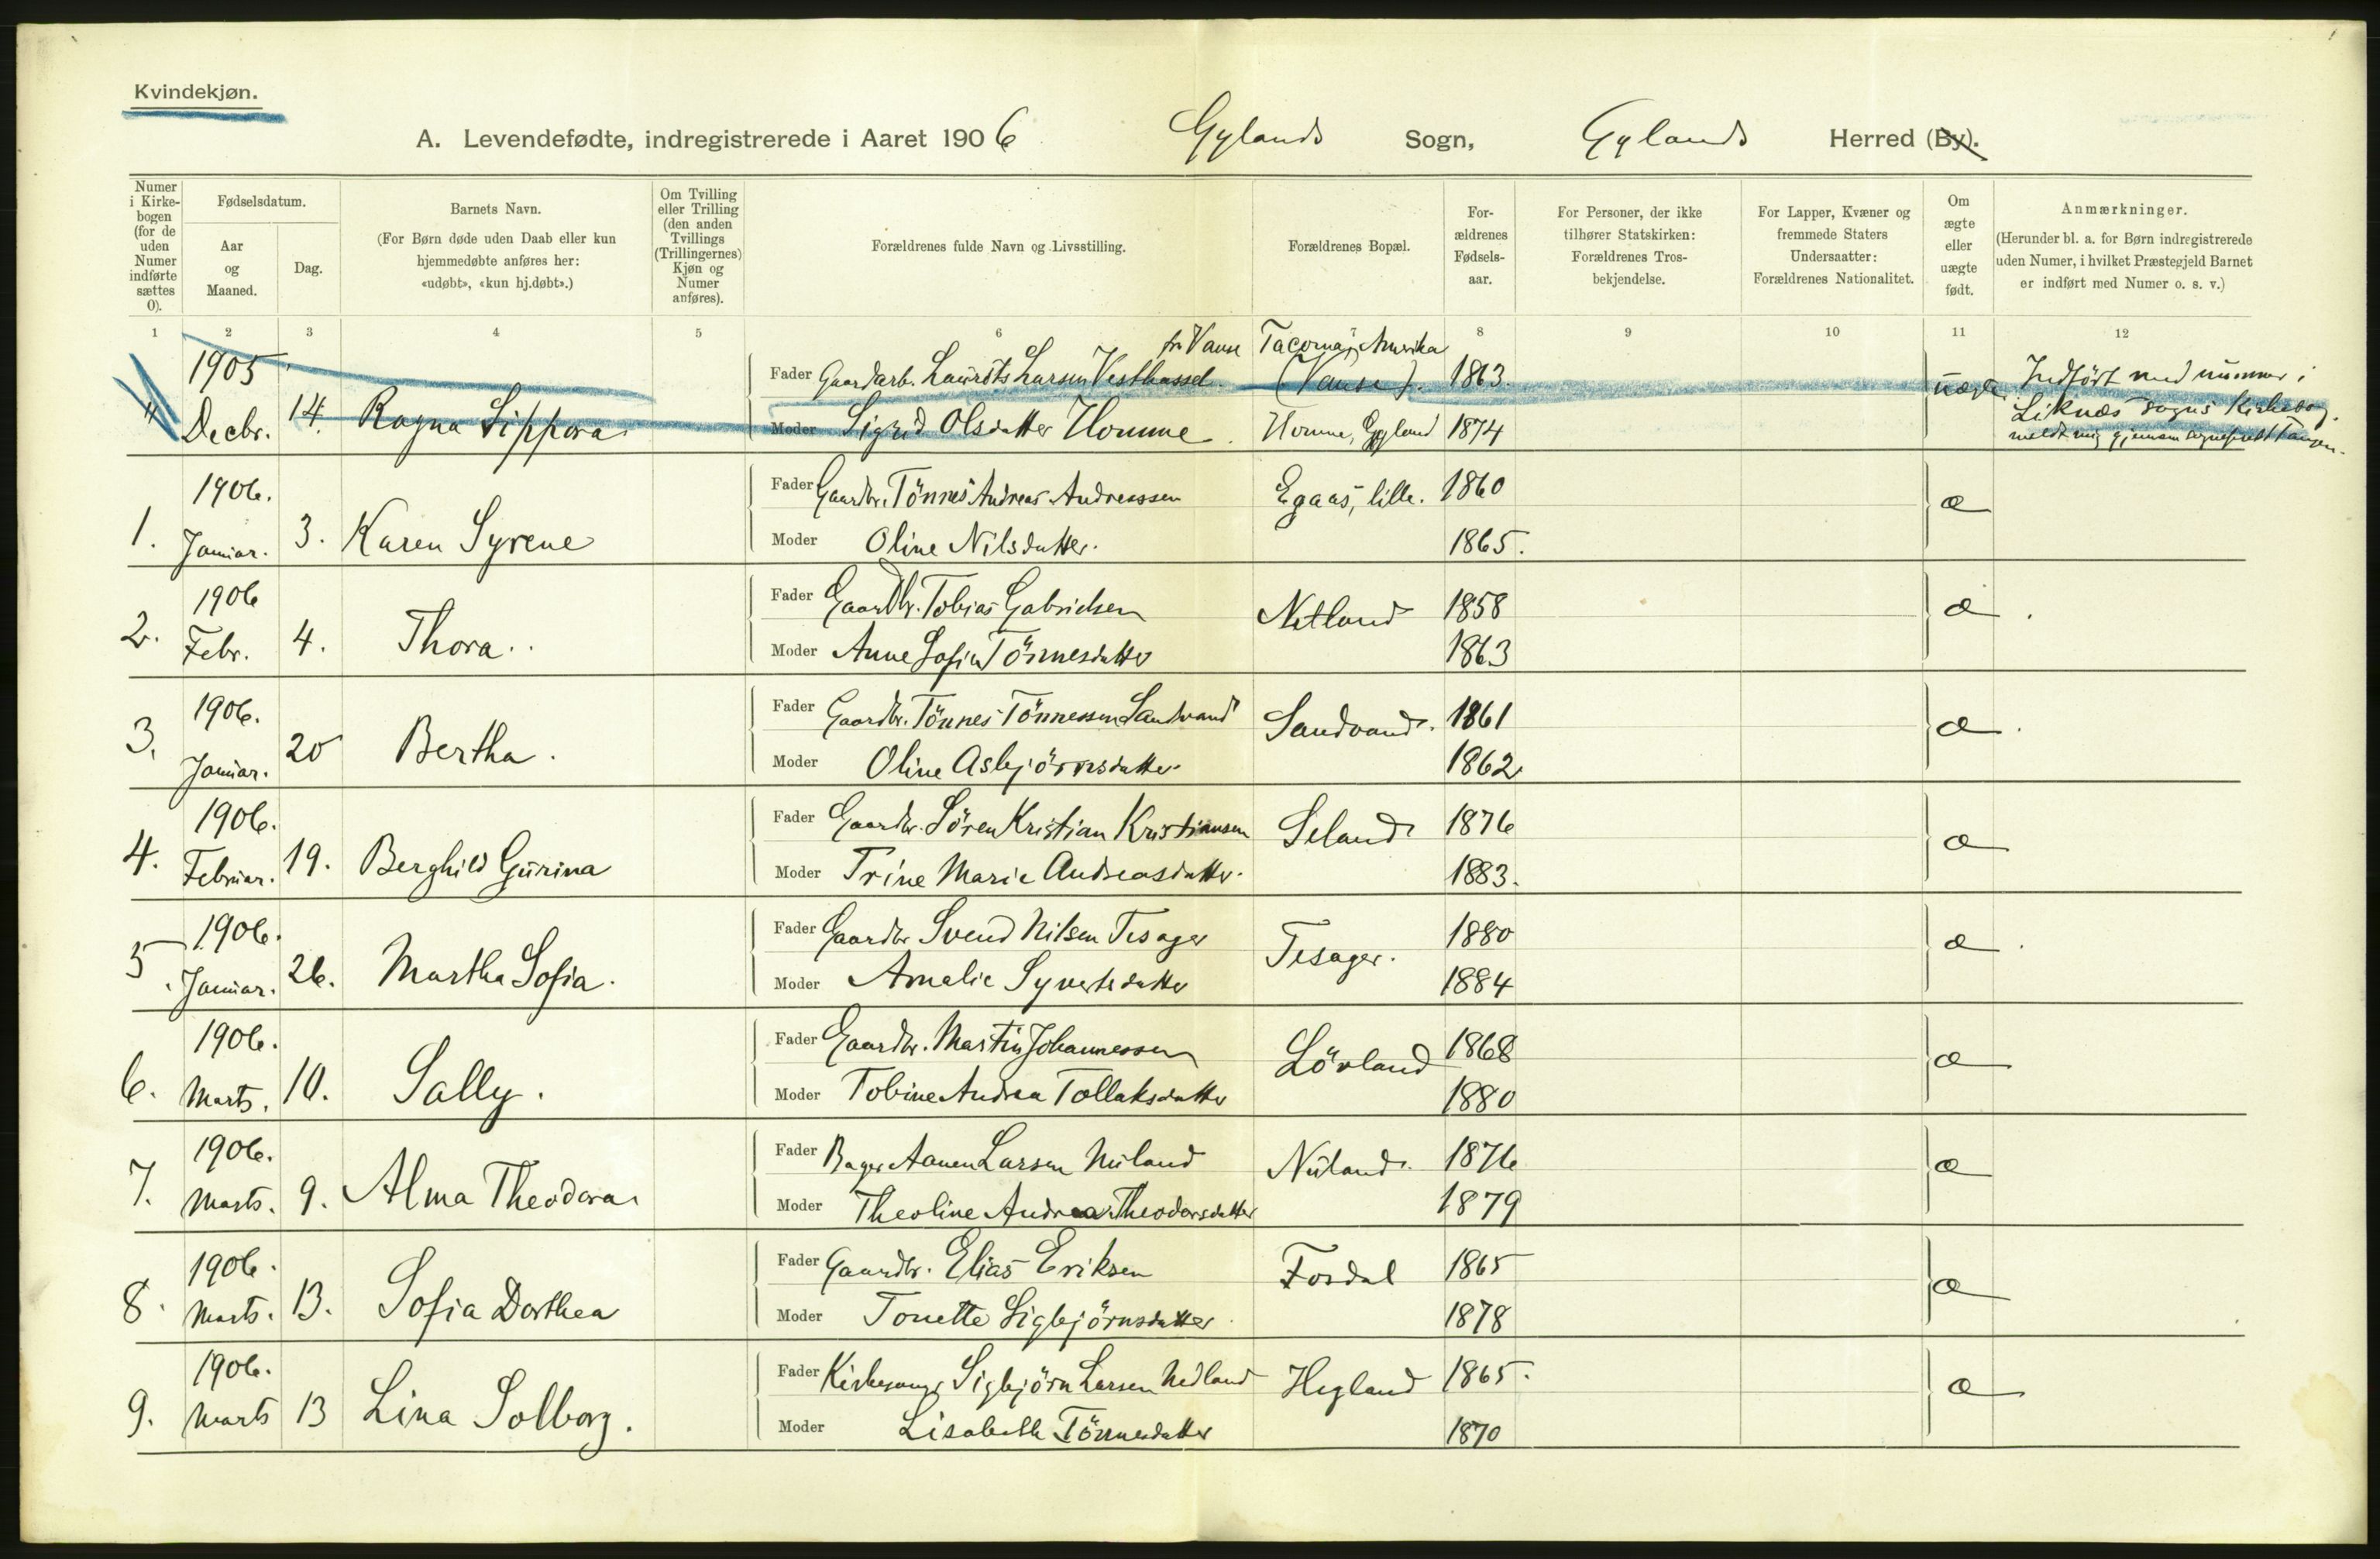 Kvindekjøn.
A. Levendefødte, indregistrerede i Aaret 1906 Gylands Sogn, Gylands Herred (By).
Numer i Kirkebogen (for de uden Numer indførte sættes 0).
Fødselsdatum.
Aar og Maaned.
Dag.
Barnets Navn.
(For Børn døde uden Daab eller kun hjemmedøbte anføres her: «udøbt», «kun hj.døbt».)
Om Tvilling eller Trilling (den anden Tvillings (Trillingernes) Kjøn og Numer anføres).
Forældrenes fulde Navn og Livsstilling.
Forældrenes Bopæl.
Forældrenes Fødselsaar.
For Personer, der ikke tilhører Statskirken: Forældrenes Trosbekjendelse.
For Lapper, Kvæner og fremmede Staters Undersaatter: Forældrenes Nationalitet.
Om ægte eller uægte født.
Anmærkninger.
(Herunder bl. a. for Børn indregistrerede uden Numer, i hvilket Præstegjeld Barnet er indført med Numer o. s. v.)
1 2 3 4 5 6 7 8 9 10 11 12
fr. Vanse Tacoma, Amerika
1905 Fader Gaardarb. Laurits Larsen Vesthassel (Vanse). 1863. uægte Indført med nummer i
" Decbr. 14. Ragna Sippora Moder Sigrid Olsdatter Homme. Homme, Gyland 1874 Liknes sogns Kirkebog.
meldt mig gjennem sogneprest Tangen.
1906. Fader Gaardbr. Tönnes Andreas Andreassen Egaas, lille. 1860 æ
1. Januar. 3. Karen Syrene Moder Oline Nilsdatter. 1865.
1906 Fader Gaardbr. Tobias Gabrielsen Netland 1858 æ
2. Febr. 4. Thora. Moder Anne Sofie Tönnesdatter 1863
1906. Fader Gaardbr. Tönnes Tönnessen Sandvand Sandvand. 1861 æ
3. Januar. 20 Bertha. Moder Oline Asbjörnsdatter 1862
1906. Fader Gaardbr. Sören Kristian Kristiansen Seland 1876 æ
4. Februar. 19. Berghild Gurina Moder Trine Marie Andreasdatter. 1883.
1906. Fader Gaardbr Svend Nilsen Tesager Tesager. 1880 æ
5. Januar. 26. Martha Sofia. Moder Amalie Syvertsdatter 1884
1906. Fader Gaardbr. Martin Johannessen Lövland 1868 æ
6. Marts. 10. Sally. Moder Tobine Andrea Tollaksdatter 1880
1906. Fader Bager Aanen Larsen Nuland Nuland. 1876 æ
7. Marts. 9. Alma Theodora Moder Theoline Andrea Theodorsdatter 1879
1906. Fader Gaardbr. Elias Eriksen Fosdal 1865 æ
8. Marts. 13. Sofia Dorthea Moder Tonette Sigbjörnsdatter 1878
1906. Fader Kirkesanger Sigbjörn Larsen Nedland Hegland 1865. æ
9. Marts 13 Lina Solborg. Moder Lisabeth Tönnesdatter 1870